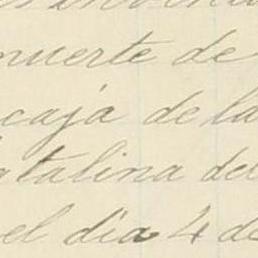 muerte de
caja de la
atalina del
el día 4 de